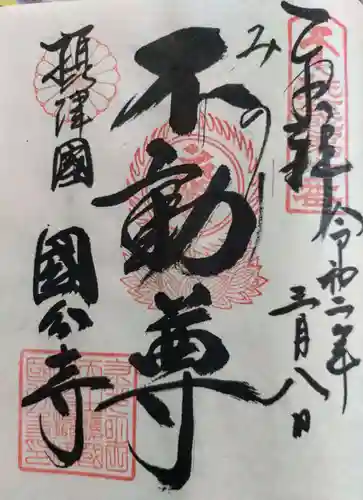 奉拝
令和二年
三月八日
みのり
不動尊
摂津國
國分寺